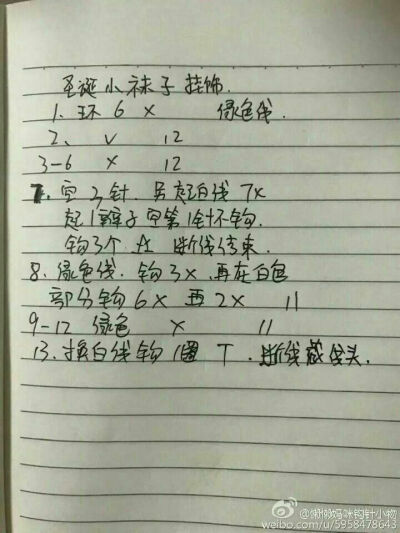 圣诞小袜子挂饰.
1. 环 6 X 绿色线.
2、 V 12
3-6 X 12
7. 空3针. 另起白线 7X
起1辫子空第1针不钩.
钩3个 A 断线结束.
8. 绿色线. 钩3X. 再在白色
部分钩 6X 再 2X 11
9-12 绿色 X 11
13. 换白线钩1圈 T. 断线藏线头.
@懒懒妈咪钩针小物
weibo.com/u/5958478643